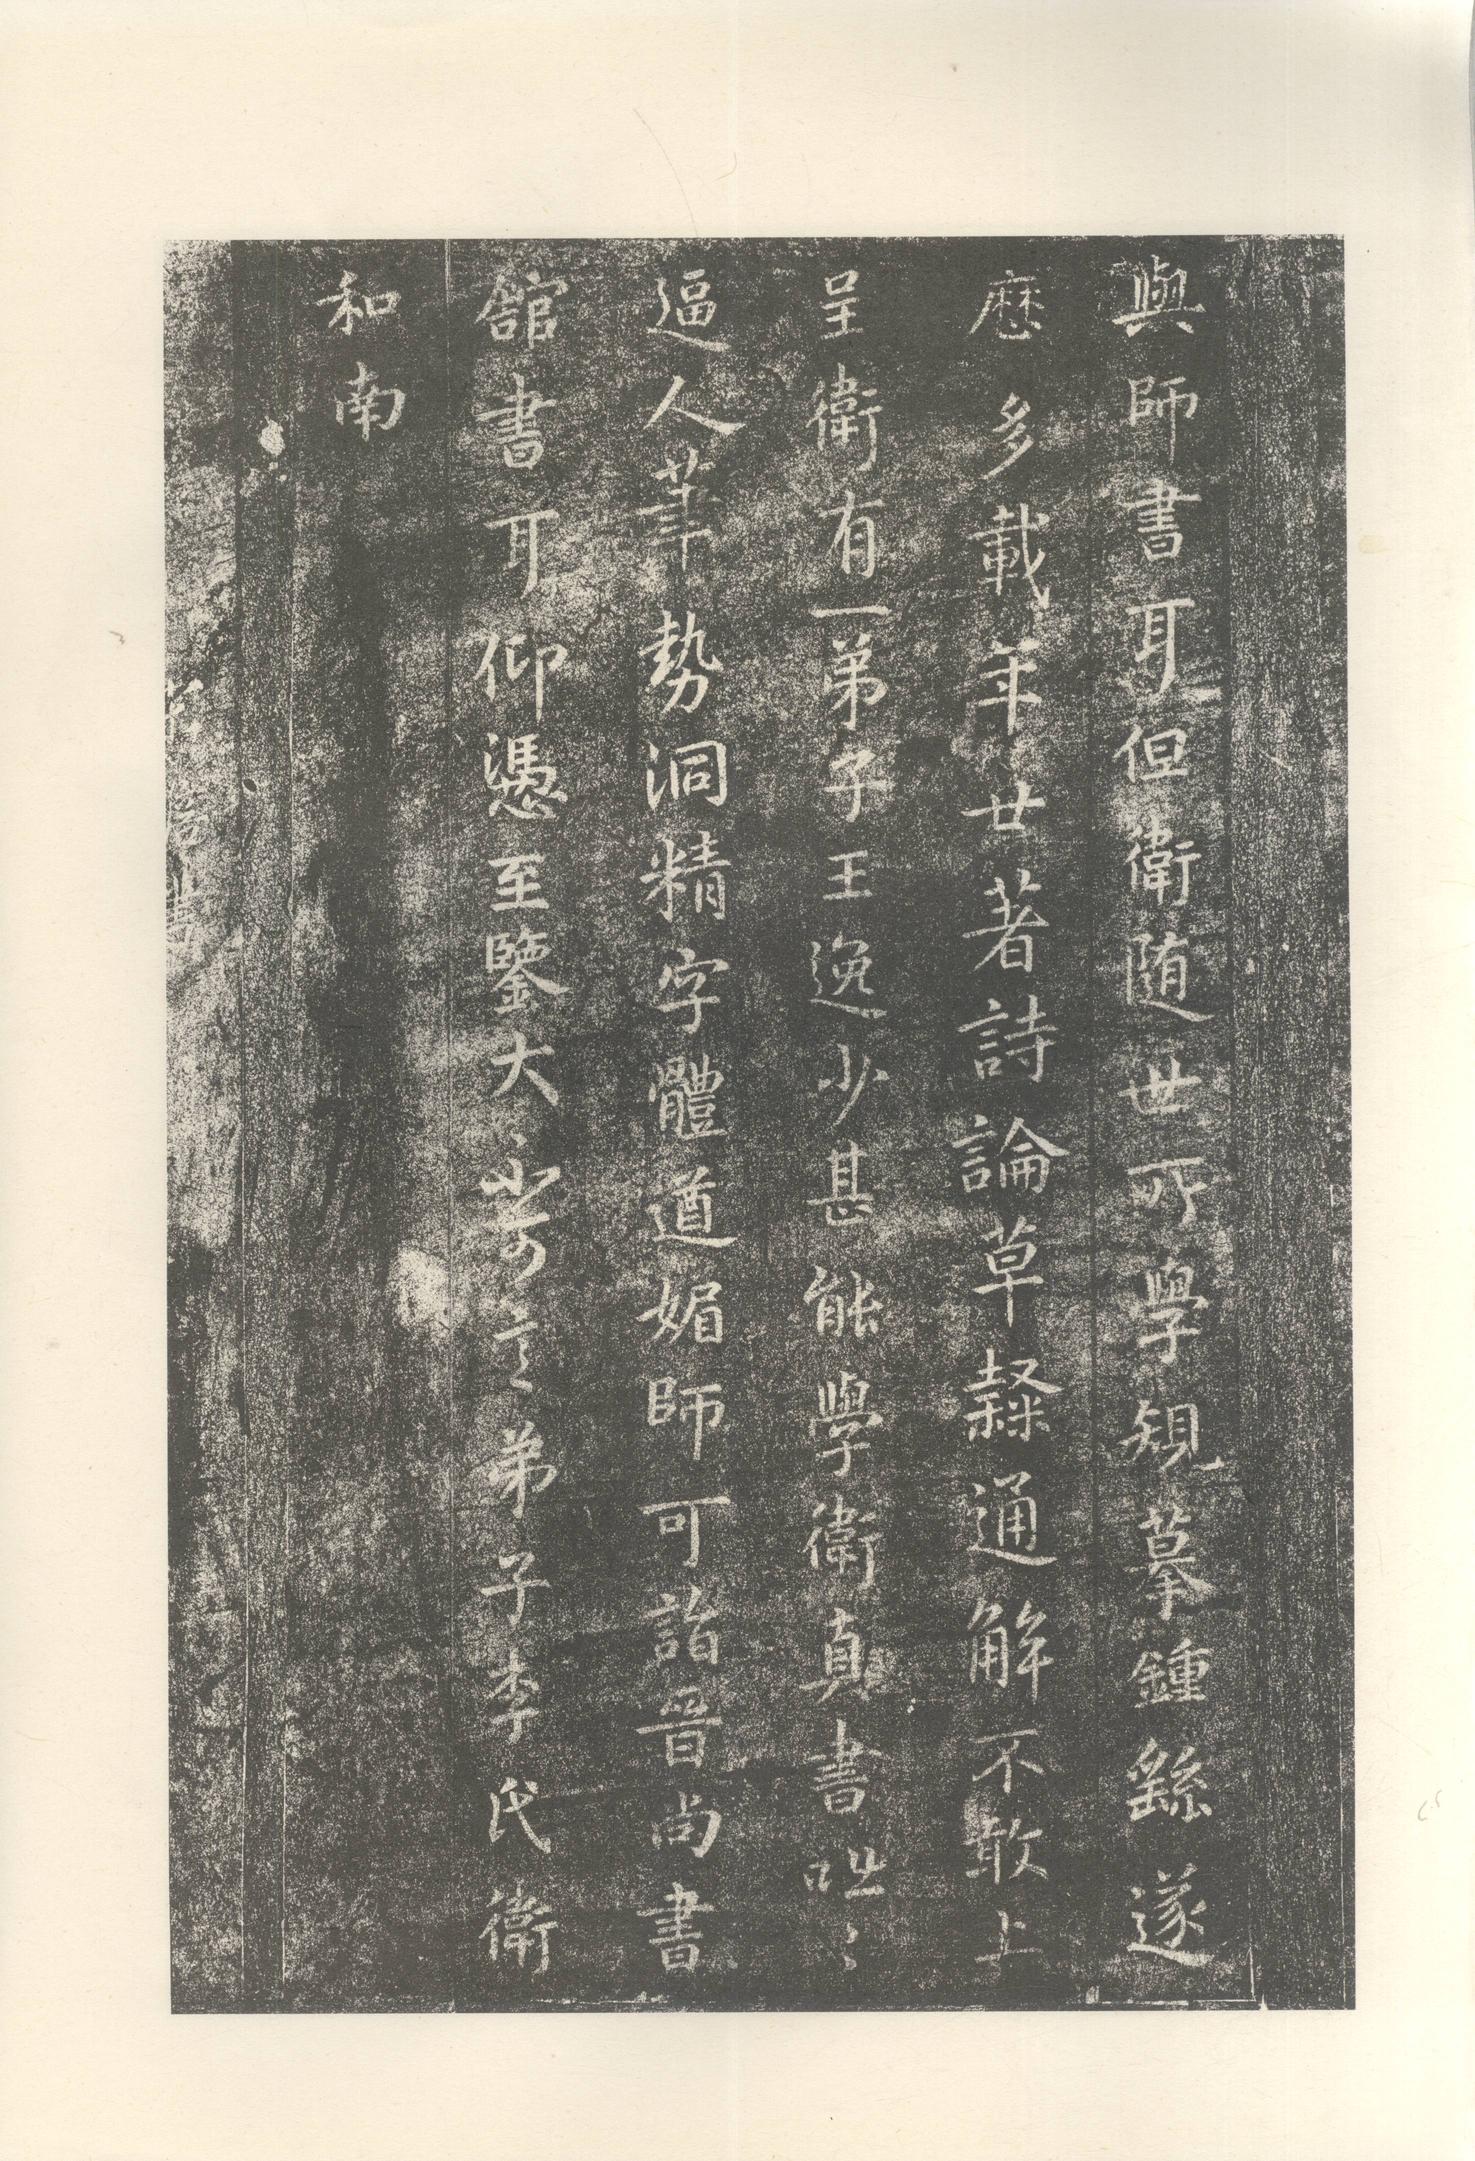 與師書耳但衛隨世所學規摹鍾繇遂
歷多載年廿著詩論草隸通解不敢上
呈衛有一弟子王逸少甚能學衛真書咄〻
逼人筆勢洞精字體遒媚師可詣晉尚書
館書耳仰憑至鑒大不可言弟子李氏衛
和南